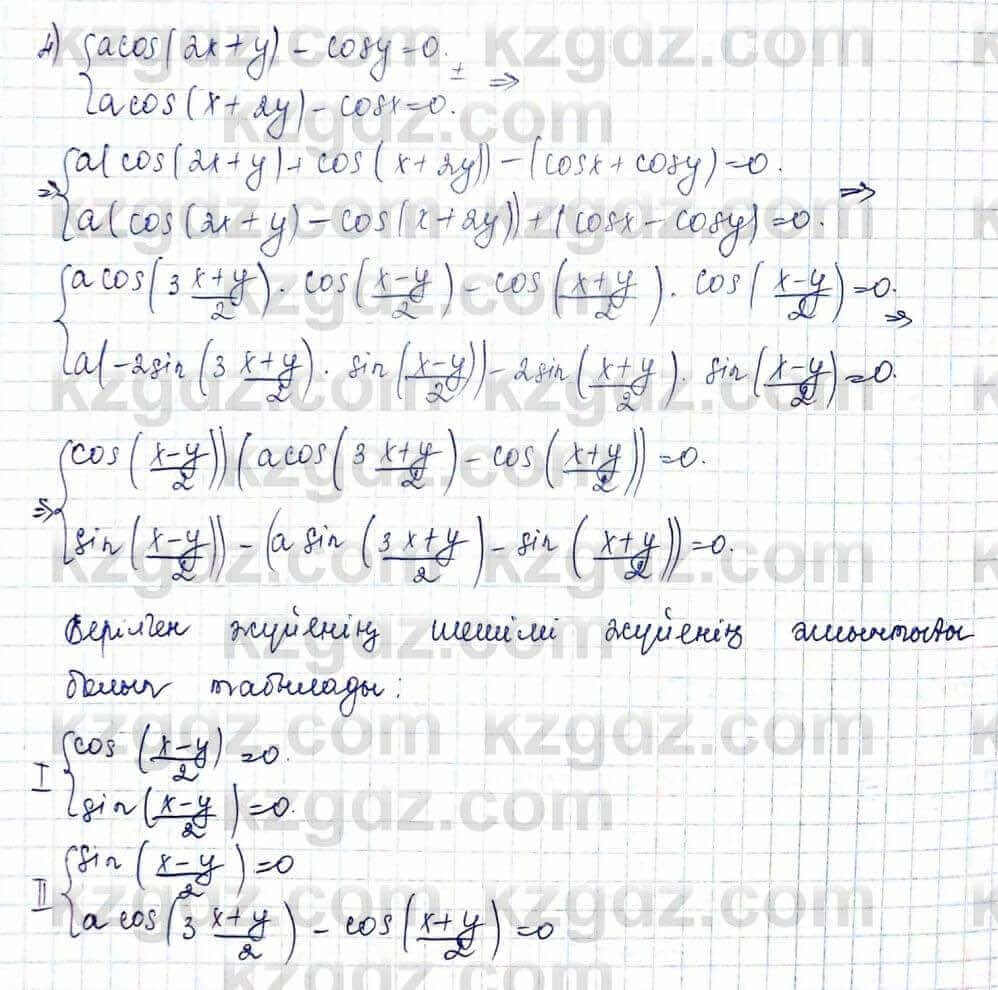 4) { a cos(2x+y) - cosy=0.
{ a cos(x+2y) - cosx=0. ± ⇒
⇒ { a(cos(2x+y)+cos(x+2y)) - (cosx+cosy)=0.
{ a(cos(2x+y) - cos(x+2y))+(cosx-cosy)=0. ⇒
{ a cos(3 x+y/2) · cos(x-y/2) - cos(x+y/2) · cos(x-y/2)=0.
{ a(-2sin(3 x+y/2) · sin(x-y/2)) - 2sin(x+y/2) · sin(x-y/2)=0. ⇒
⇒ { cos(x-y/2))(a cos(3 x+y/2) - cos(x+y/2))=0.
{ sin(x-y/2)) - (a sin(3x+y/2) - sin(x+y/2))=0.
Берілген жүйенің шешімі жүйенің жиынтығы
болып табылады:
I { cos(x-y/2)=0.
{ sin(x-y/2)=0.
II { sin(x-y/2)=0
{ a cos(3 x+y/2) - cos(x+y/2)=0
kzgdz.com